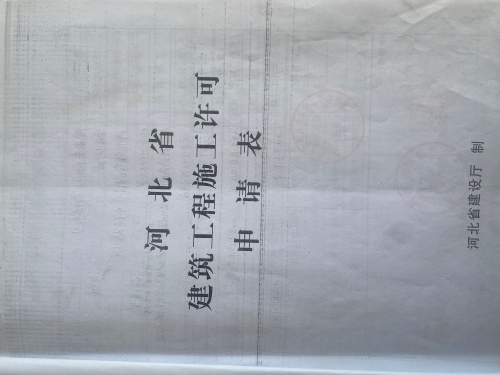 河北省
建筑工程施工许可
申请表
河北省建设厅 制